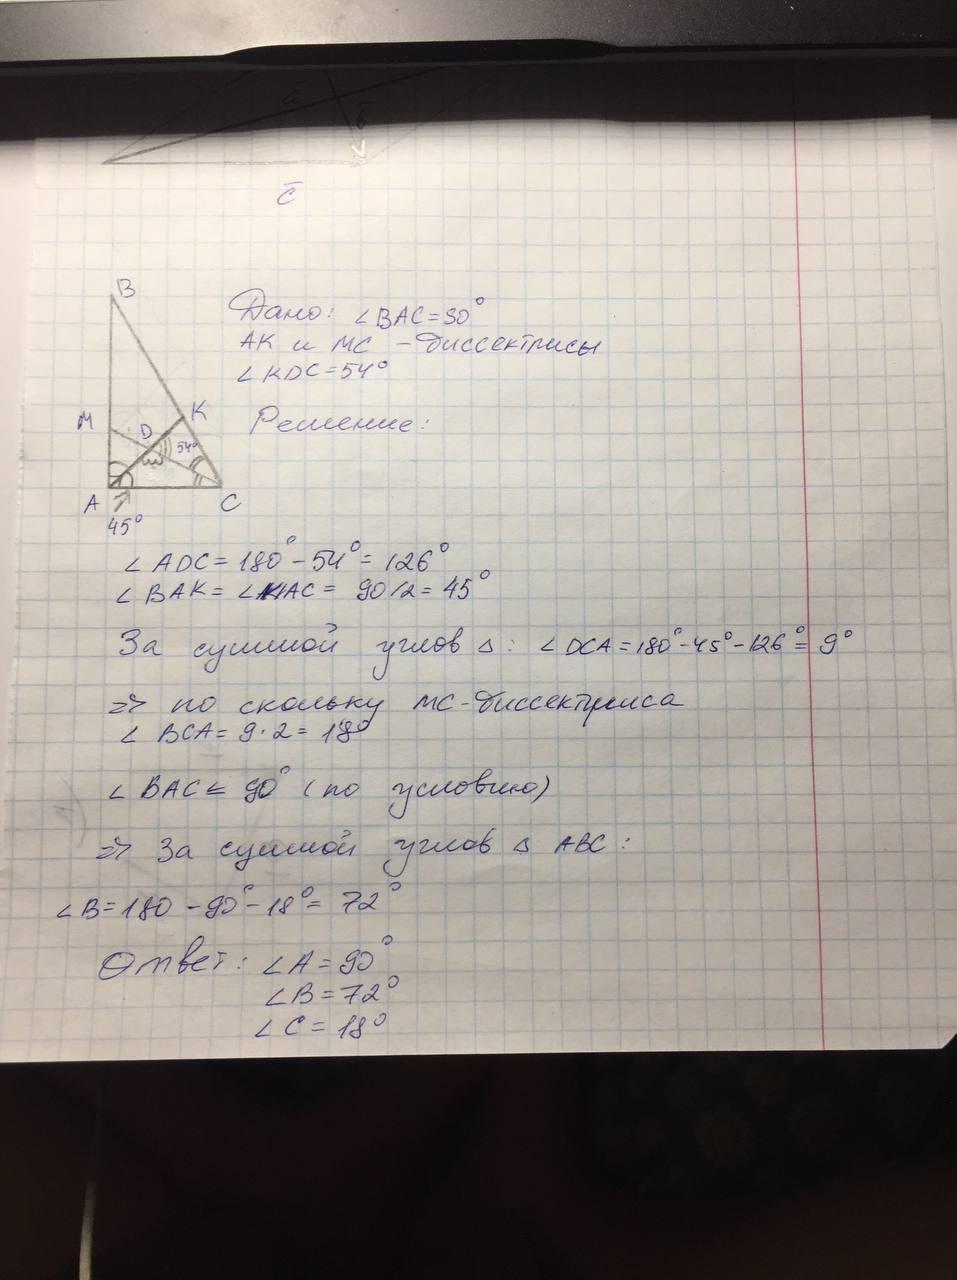 a
b
c
B
Дано: ∠BAC=90°
AK и MC - биссектрисы
∠KDC=54°
M
K
D
54°
Решение:
A
C
45°
∠ADC = 180° - 54° = 126°
∠BAK = ∠KAC = 90/2 = 45°
За суммой углов △: ∠DCA = 180° - 45° - 126° = 9°
=> по скольку MC - биссектриса
∠BCA = 9·2 = 18°
∠BAC = 90° (по условию)
=> За суммой углов △ ABC:
∠B = 180 - 90° - 18° = 72°
Ответ: ∠A = 90°
∠B = 72°
∠C = 18°